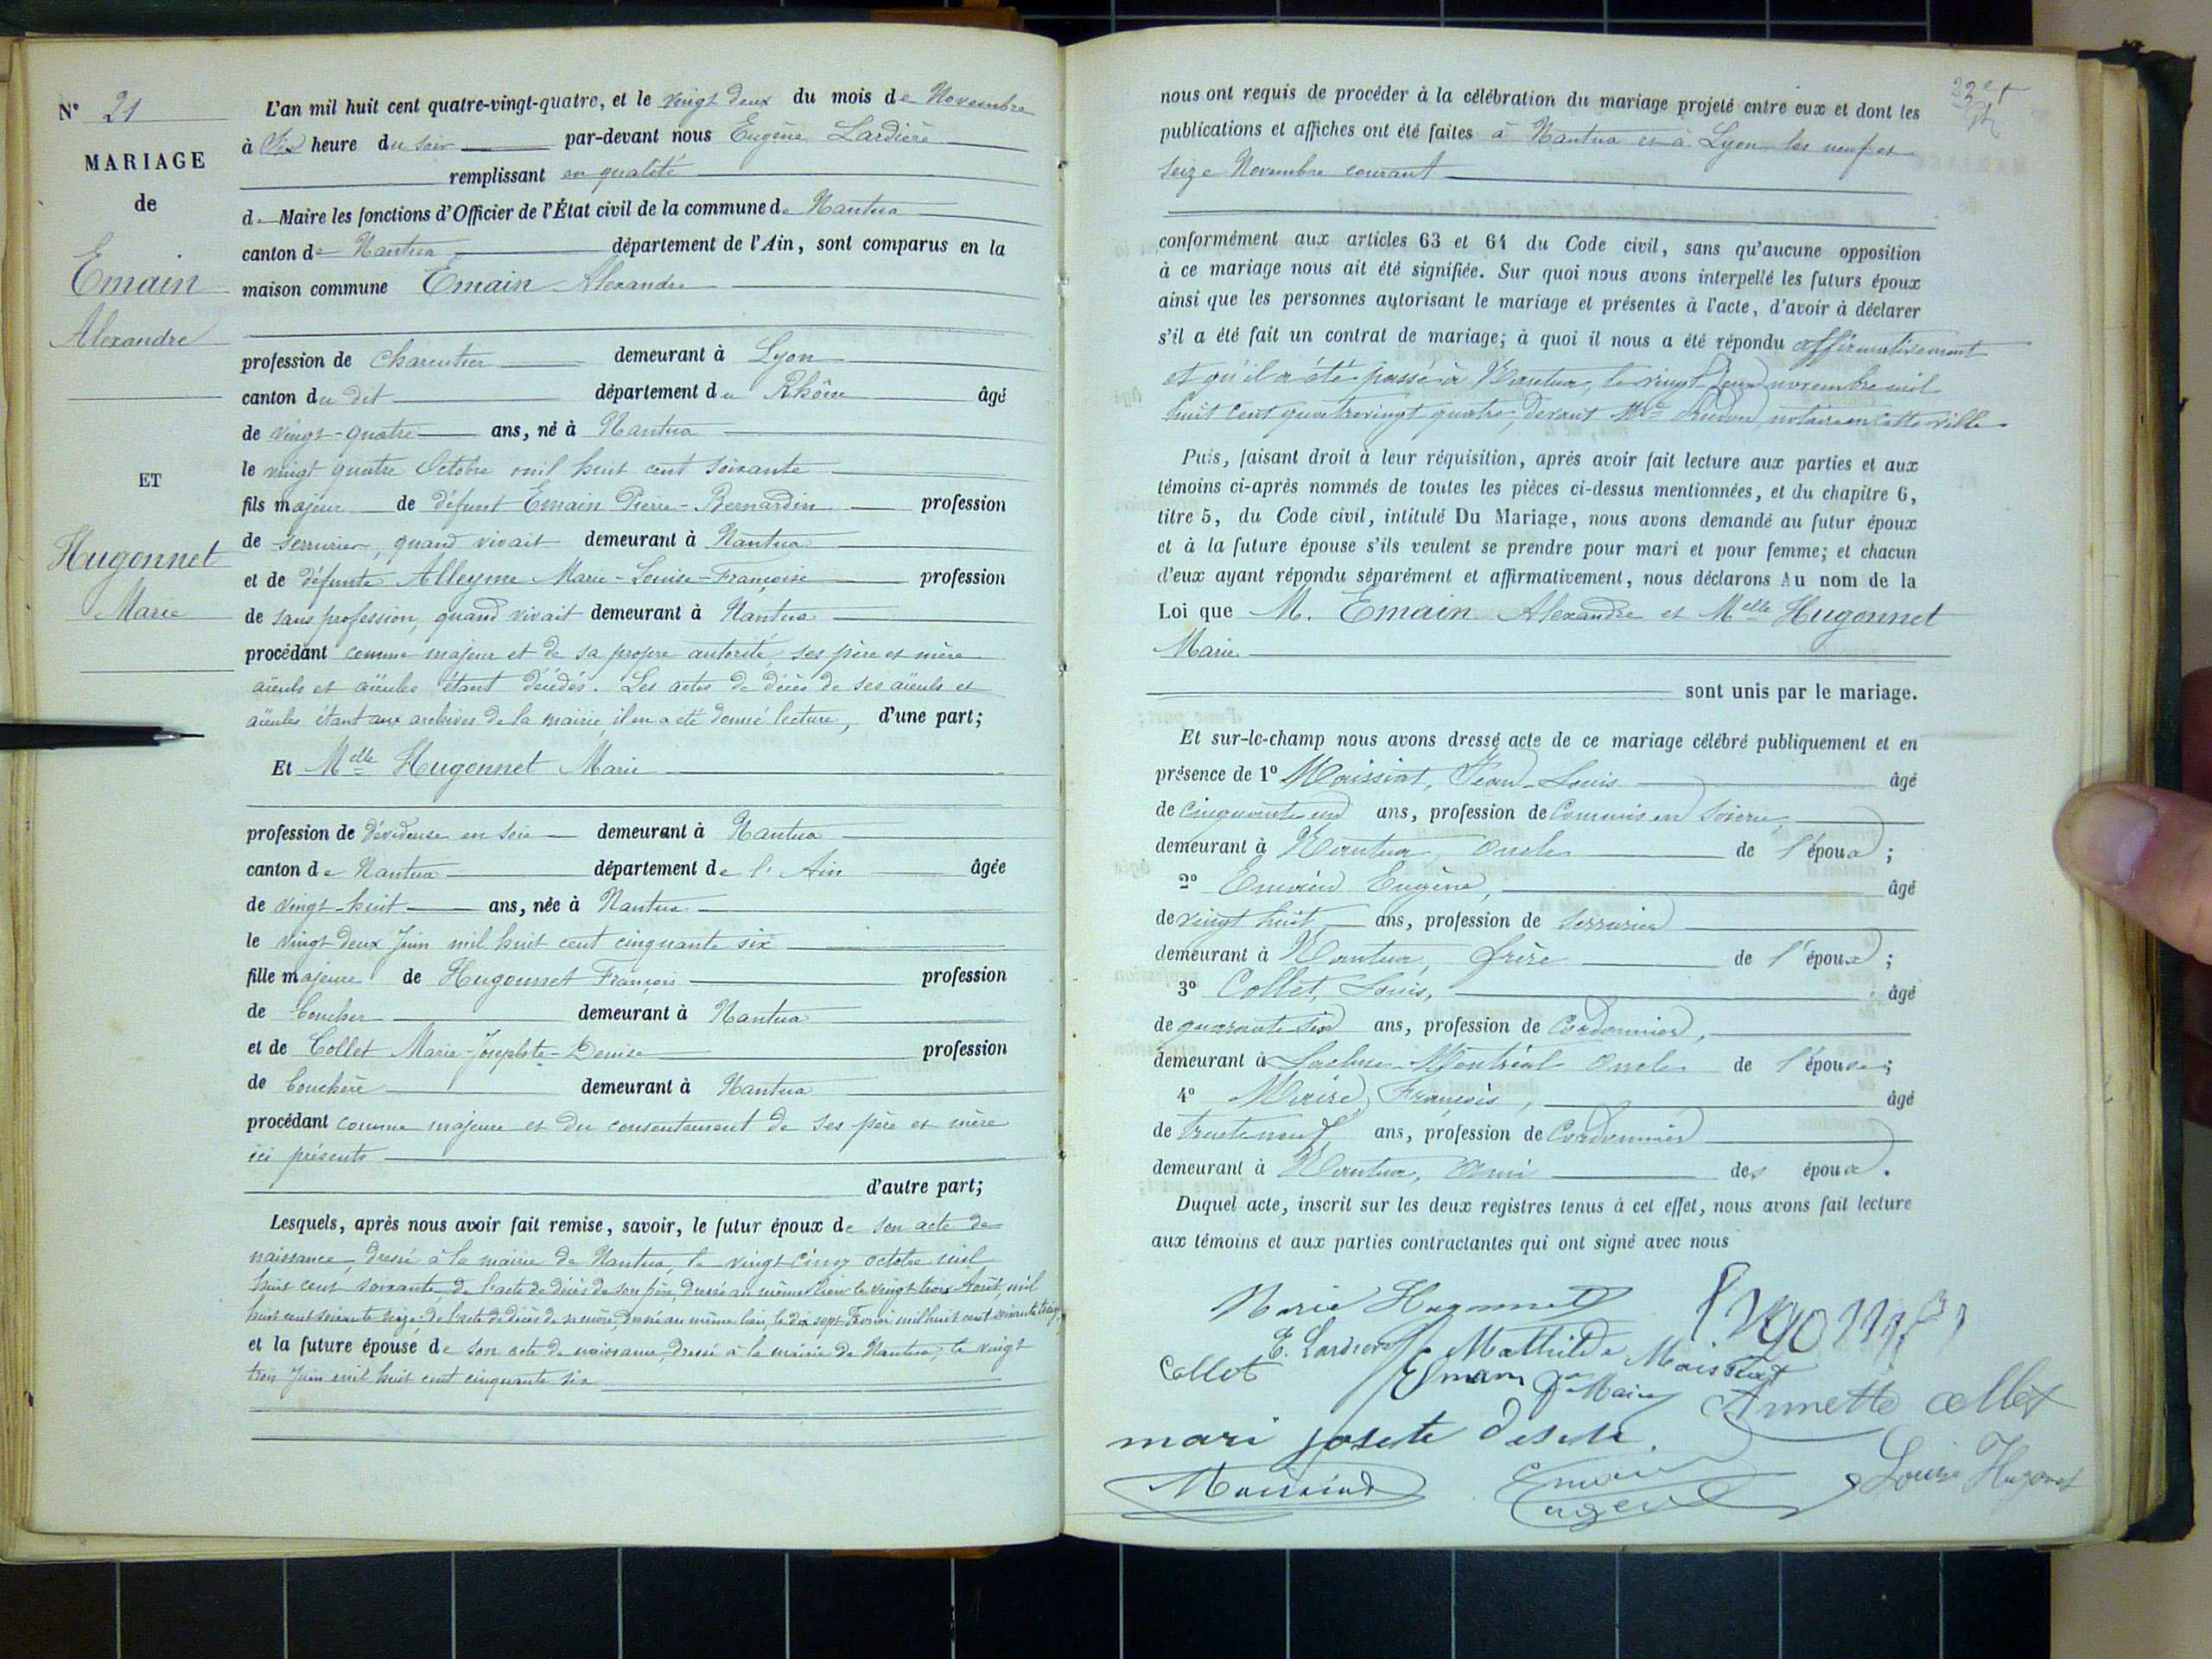 N° 21
MARIAGE
de
Emain
Alexandre
ET
Hugonnet
Marie
L'an mil huit cent quatre-vingt-quatre, et le vingt deux du mois de Novembre
à Six heure du soir par-devant nous Eugène Lardière
remplissant en qualité
de Maire les fonctions d'Officier de l'État civil de la commune de Nantua
canton de Nantua département de l'Ain, sont comparus en la
maison commune Emain Alexandre
profession de Charcutier demeurant à Lyon
canton du dit département du Rhône âgé
de vingt-quatre ans, né à Nantua
le vingt quatre Octobre mil huit cent soixante
fils majeur de défunt Emain Pierre-Bernardin profession
de serrurier, quand vivait demeurant à Nantua
et de défunte Alleyme Marie-Louise-Françoise profession
de sans profession, quand vivait demeurant à Nantua
procédant comme majeur et de sa propre autorité, ses père et mère
aïeuls et aïeules étant décédés. Les actes de décès de ses aïeuls et
aïeules étant aux archives de la mairie, il en a été donné lecture, d'une part;
Et Melle Hugonnet Marie
profession de dévideuse en soie demeurant à Nantua
canton de Nantua département de l'Ain âgée
de vingt-huit ans, née à Nantua
le vingt deux Juin mil huit cent cinquante six
fille majeure de Hugonnet François profession
de boucher demeurant à Nantua
et de Collet Marie-Josephte-Denise profession
de bouchère demeurant à Nantua
procédant comme majeure et du consentement de ses père et mère
ici présents
d'autre part;
Lesquels, après nous avoir fait remise, savoir, le futur époux de son acte de
naissance, dressé à la mairie de Nantua, le vingt cinq octobre mil
huit cent soixante, de l'acte de décès de son père, dressé au même lieu le vingt trois Août mil
huit cent soixante seize, de l'acte de décès de sa mère, dressé au même lieu, le dix sept Février mil huit cent soixante treize
et la future épouse de son acte de naissance, dressé à la mairie de Nantua, le vingt
trois Juin mil huit cent cinquante six
nous ont requis de procéder à la célébration du mariage projeté entre eux et dont les
publications et affiches ont été faites à Nantua et à Lyon les neuf et
seize Novembre courant
conformément aux articles 63 et 64 du Code civil, sans qu'aucune opposition
à ce mariage nous ait été signifiée. Sur quoi nous avons interpellé les futurs époux
ainsi que les personnes autorisant le mariage et présentes à l'acte, d'avoir à déclarer
s'il a été fait un contrat de mariage; à quoi il nous a été répondu affirmativement
et qu'il a été passé à Nantua, le vingt deux novembre mil
huit cent quatre vingt quatre, devant notaire en cette ville
Puis, faisant droit à leur réquisition, après avoir fait lecture aux parties et aux
témoins ci-après nommés de toutes les pièces ci-dessus mentionnées, et du chapitre 6,
titre 5, du Code civil, intitulé Du Mariage, nous avons demandé au futur époux
et à la future épouse s'ils veulent se prendre pour mari et pour femme; et chacun
d'eux ayant répondu séparément et affirmativement, nous déclarons Au nom de la
Loi que M. Emain Alexandre et Melle Hugonnet
Marie
sont unis par le mariage.
Et sur-le-champ nous avons dressé acte de ce mariage célébré publiquement et en
présence de 1° Moissiat, Jean-Louis âgé
de cinquante un ans, profession de Commis en soierie
demeurant à Nantua, Oncle de l'époux;
2° Emain Eugène, âgé
de vingt huit ans, profession de serrurier
demeurant à Nantua, frère de l'époux;
3° Collet, Louis, âgé
de quarante six ans, profession de Cordonnier,
demeurant à Lacluse-Montréal Oncle de l'épouse;
4° François, âgé
de trente neuf ans, profession de Cordonnier
demeurant à Nantua, Ami des époux.
Duquel acte, inscrit sur les deux registres tenus à cet effet, nous avons fait lecture
aux témoins et aux parties contractantes qui ont signé avec nous
Marie Hugonnet
E. Lardière Mathilde Moissiat
Collet Emain
Annette collet
mari josete
Moissiat Emain Eugène Louise Hugonnet